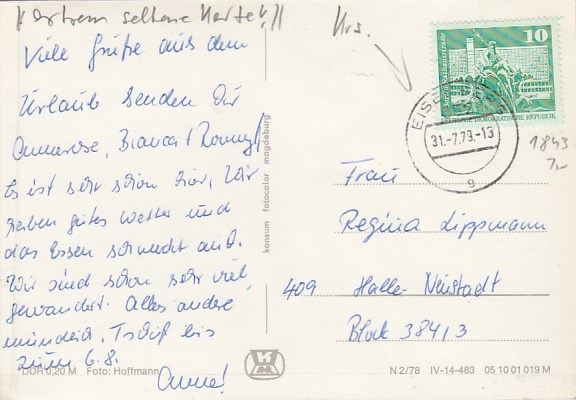 extrem seltene Karte!!
Krs.
Viele Grüße aus dem
Urlaub senden Dir
Annerose, Bianca + Ronny!
Es ist sehr schön hier, Wir
haben gutes Wetter und
das Essen schmeckt auch.
Wir sind schon sehr viel
gewandert. Alles andere
mündlich. Tschüß bis
zum 6.8.
Anne!
10
DEUTSCHE DEMOKRATISCHE REPUBLIK
31.-7.79.-13
g
1843
7,-
Frau
Regina Lippmann
409 Halle-Neustadt
Block 384/3
konsum fotocolor magdeburg
DDR 0,20 M Foto: Hoffmann
N 2/78 IV-14-483 05 10 01 019 M